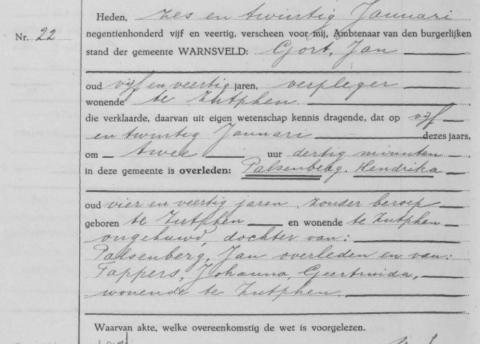 Heden, zes en twintig Januari
Nr. 22
negentienhonderd vijf en veertig, verscheen voor mij, Ambtenaar van den burgerlijken
stand der gemeente WARNSVELD: Gort, Jan
oud vijf en veertig jaren, verpleger
wonende te Zutphen
die verklaarde, daarvan uit eigen wetenschap kennis dragende, dat op vijf
en twintig Januari dezes jaars,
om twee uur dertig minuten
in deze gemeente is overleden: Palsenberg, Hendrika
oud vier en veertig jaren, zonder beroep
geboren te Zutphen en wonende te Zutphen
ongehuwd, dochter van:
Palsenberg, Jan overleden en van:
Tappers, Johanna, Geertruida,
wonende te Zutphen.
Waarvan akte, welke overeenkomstig de wet is voorgelezen.